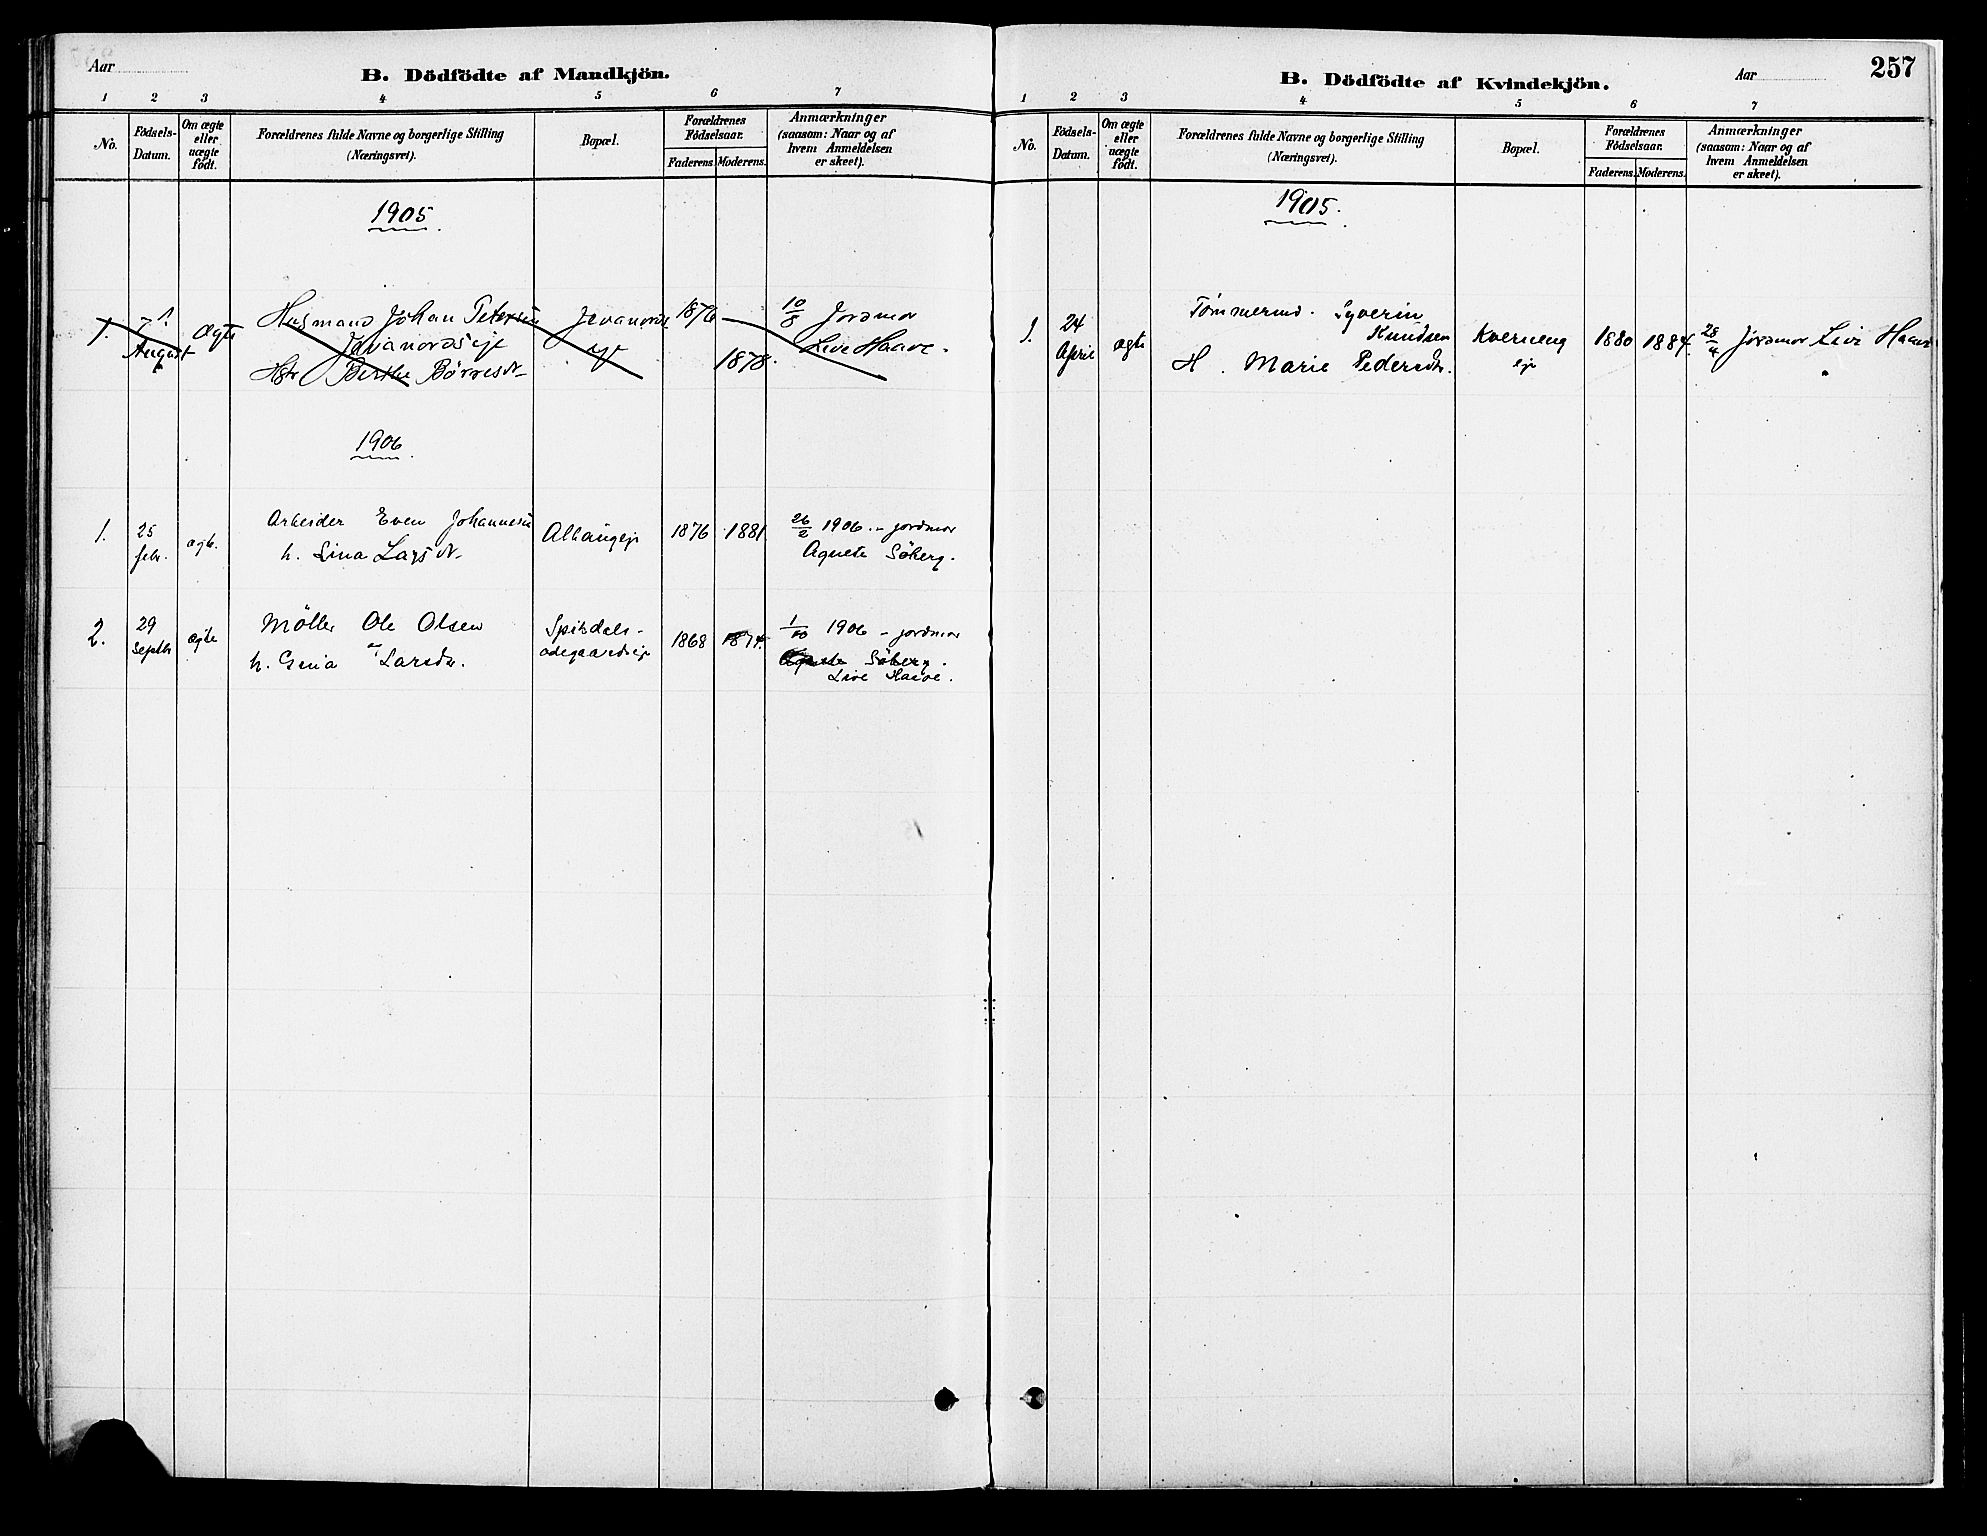 Aar
B. Dödfödte af Mandkjön.
1 2 3 4 5 6 7
No.
Födsels-Datum.
Om ægte eller uægte födt.
Forældrenes fulde Navne og borgerlige Stilling
(Næringsvei).
Bopæl.
Forældrenes Födselsaar.
Faderens. Moderens.
Anmærkninger
(saasom: Naar og af
hvem Anmeldelsen
er skeet).
1905
1. 7 Ægte Husmand Johan Petersen 1876 10/8 Jordmor
August Live Haave.
Berthe 1878.
1906
1. 25 ægt. Arbeider Even Johannesen 1876 1881 26/2 1906 - jordmor
febr. h. Lina Larsdtr. Agnete Söberg.
2. 29 ægte Möller Ole Olsen Spitsdals- 1868 1874. 1/10 1906 - jordmor
Septbr h. Larsdtr. ödegaardseje Agnete Söberg.
Live Haave.
B. Dödfödte af Kvindekjön.
Aar
257
1 2 3 4 5 6 7
No.
Födsels-Datum.
Om ægte eller uægte födt.
Forældrenes fulde Navne og borgerlige Stilling
(Næringsvei).
Bopæl.
Forældrenes Födselsaar.
Faderens. Moderens.
Anmærkninger
(saasom: Naar og af
hvem Anmeldelsen
er skeet).
1905.
1. 24 ægte Tömmermd. Syverin
April Knudsen Kverneng 1880 1884. 28/4 Jordmor Live Haave
H. Marie Pedersdtr. eje